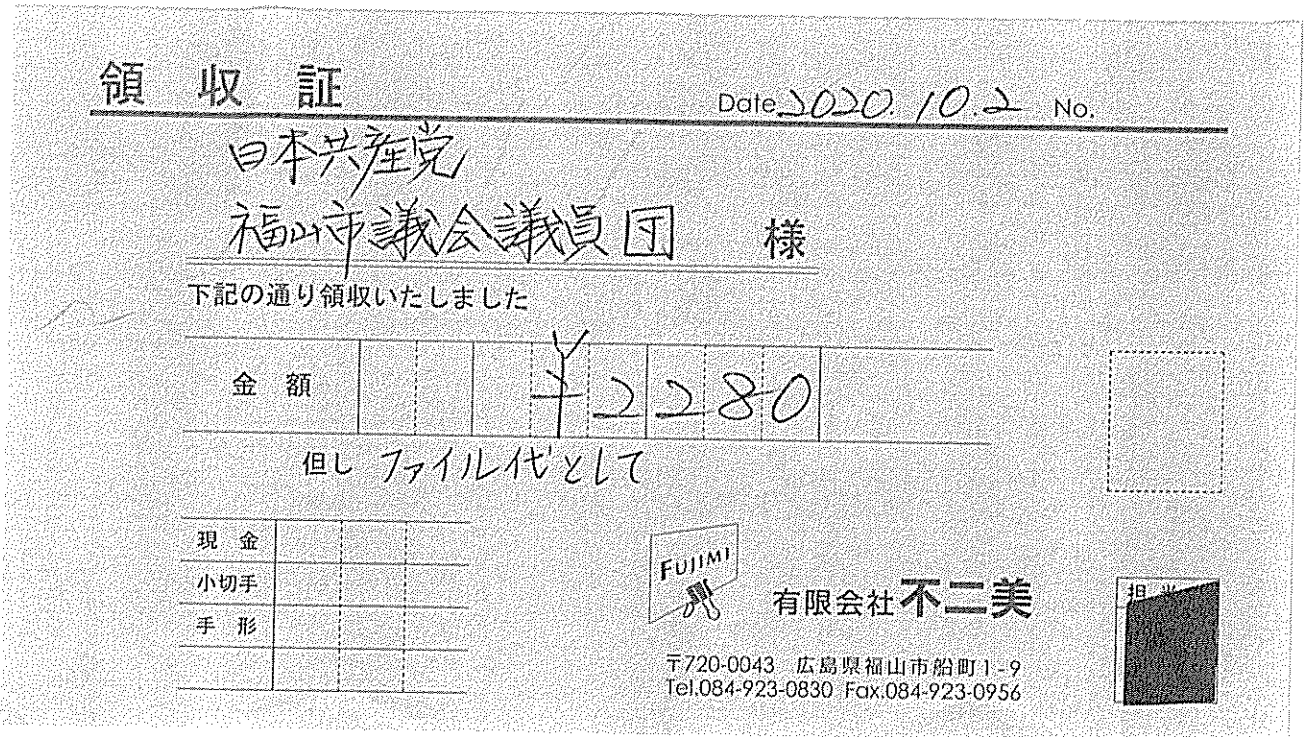 領収証
Date 2020.10.2 No.
日本共産党
福山市議会議員団 様
下記の通り領収いたしました
金額 ¥2280
但し ファイル代として
現金
小切手
手形
FUJIMI
有限会社 不二美
担当
〒720-0043 広島県福山市船町1-9
Tel.084-923-0830 Fax.084-923-0956